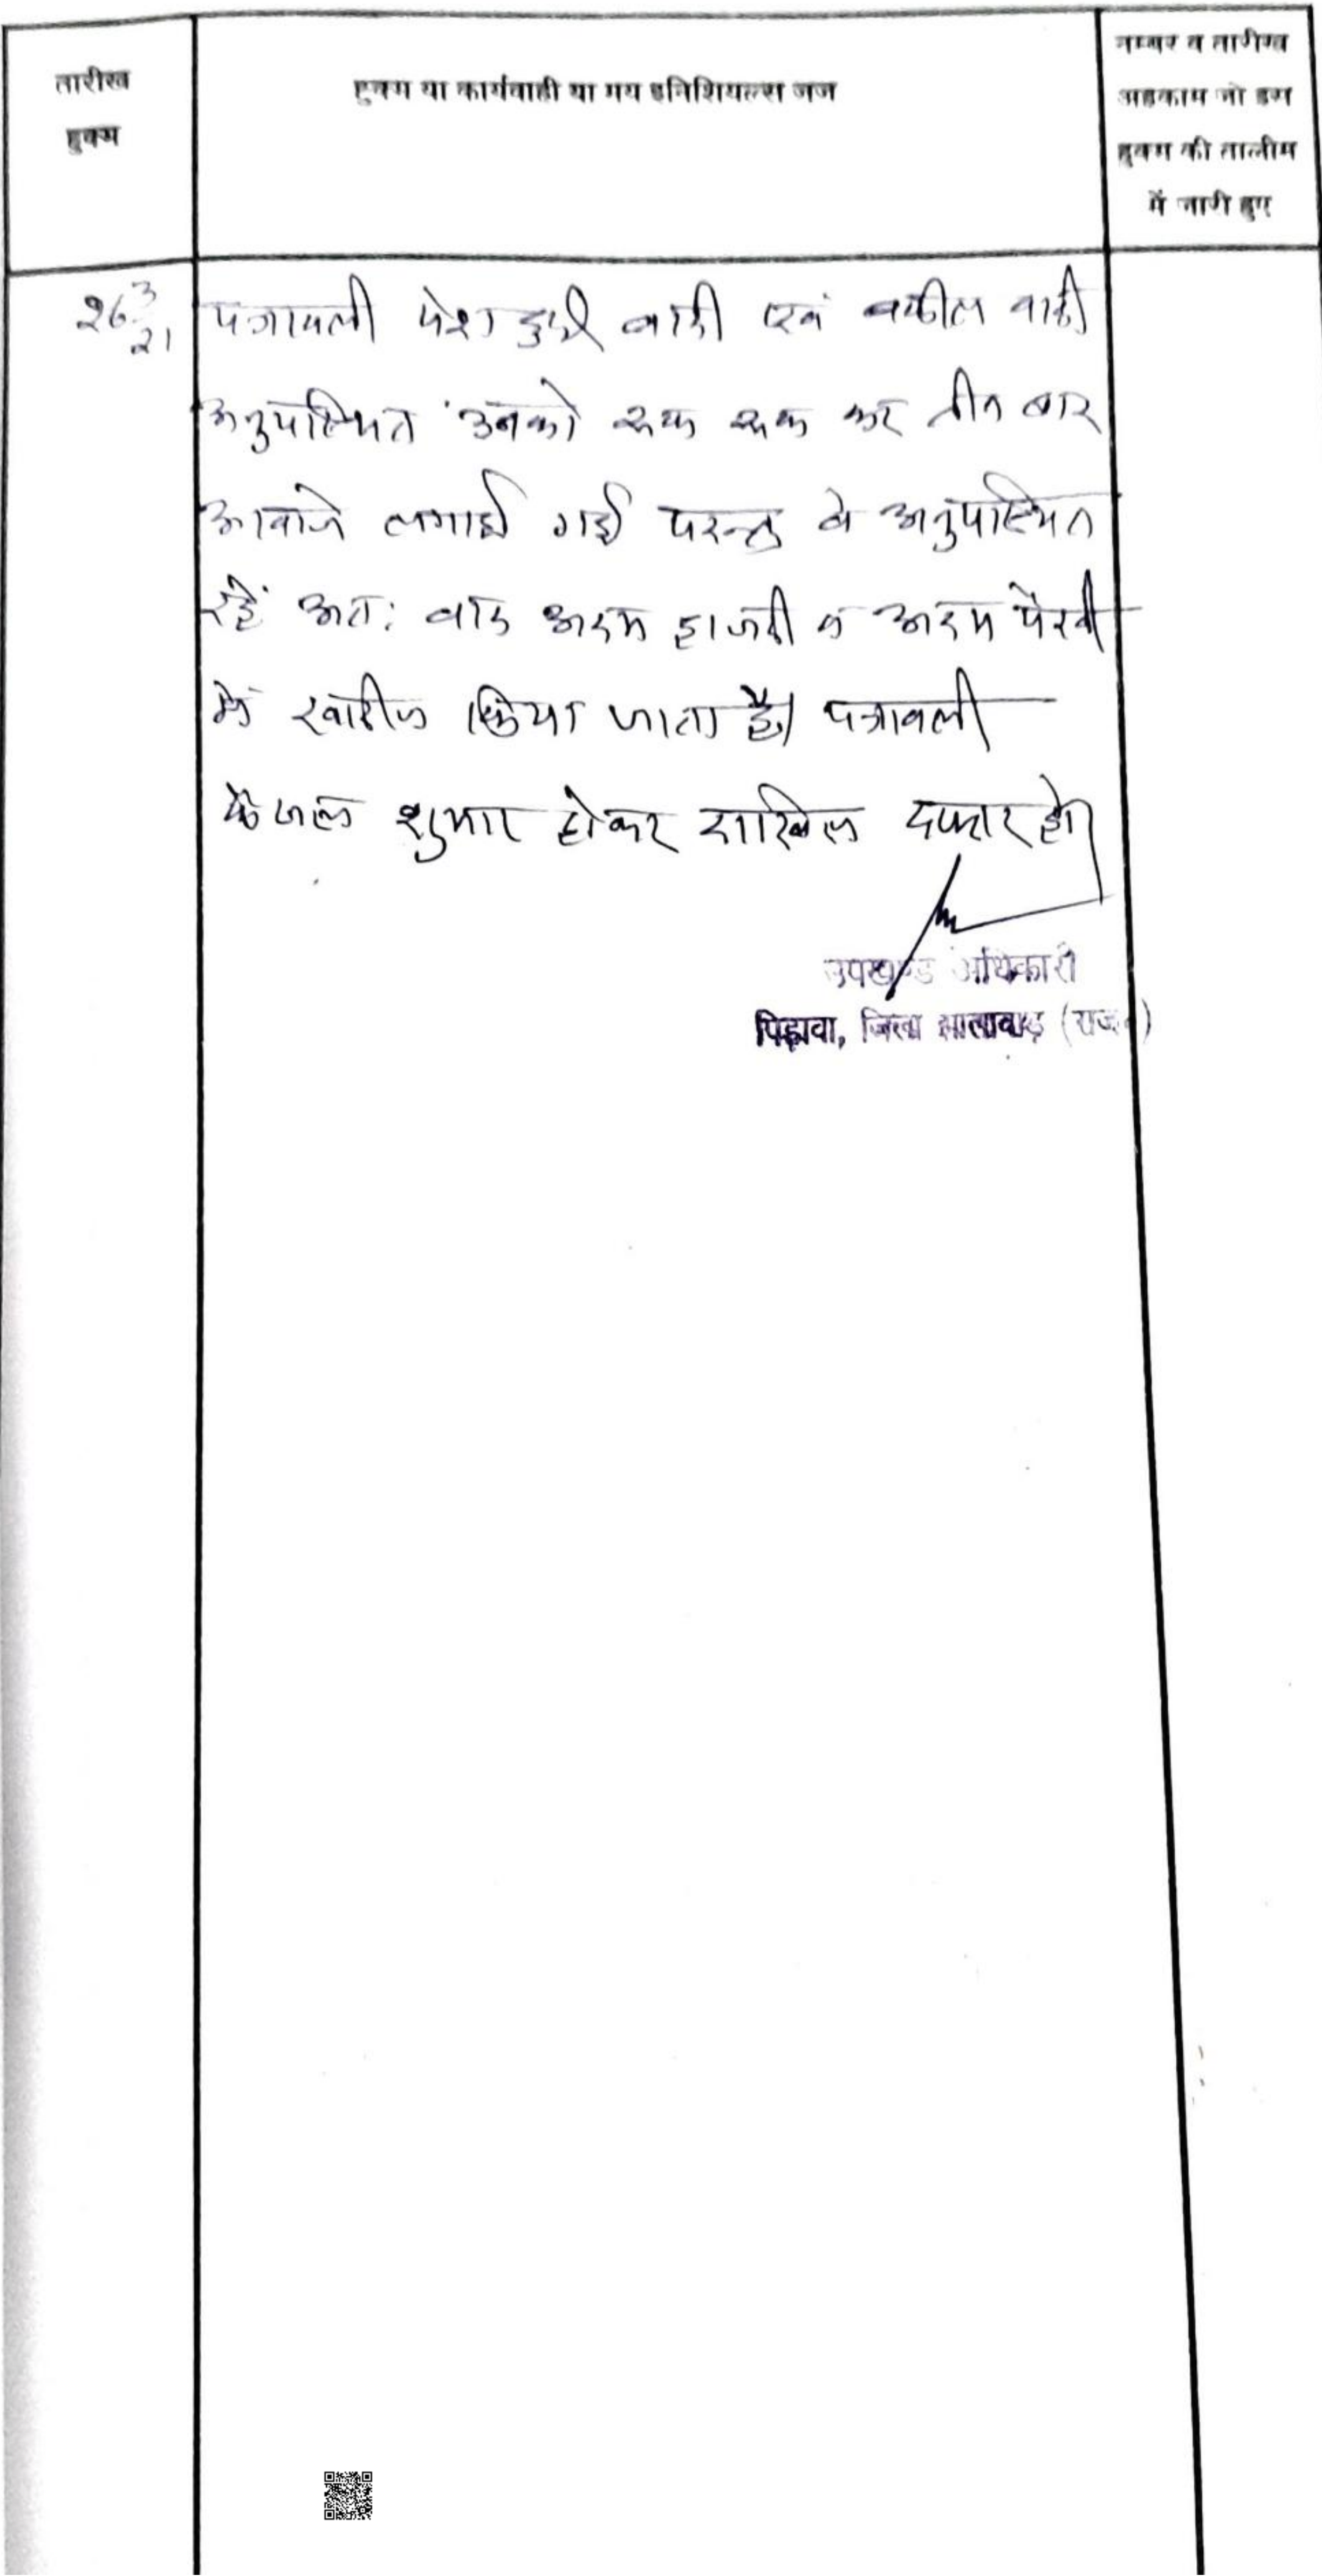 तारीख
हुक्म
हुक्म या कार्यवाही या मय इनिशियल्स जज
नम्बर व तारीख
अहकाम जो इस
हुक्म की तालीम
में जारी हुए
26 3/21
पत्रावली पेश हुई वादी एवं वकील वादी
अनुपस्थित उनको रूक रूक कर तीन बार
आवाजे लगाई गई परन्तु वे अनुपस्थित
रहें अत: वाद अदम हाजरी व अदम पैरवी
में खारीज किया जाता है। पत्रावली
फैजल शुमार होकर दाखिल दफ्तर हो।
उपखण्ड अधिकारी
पिड़ावा, जिला झालावाड़ (राज०)